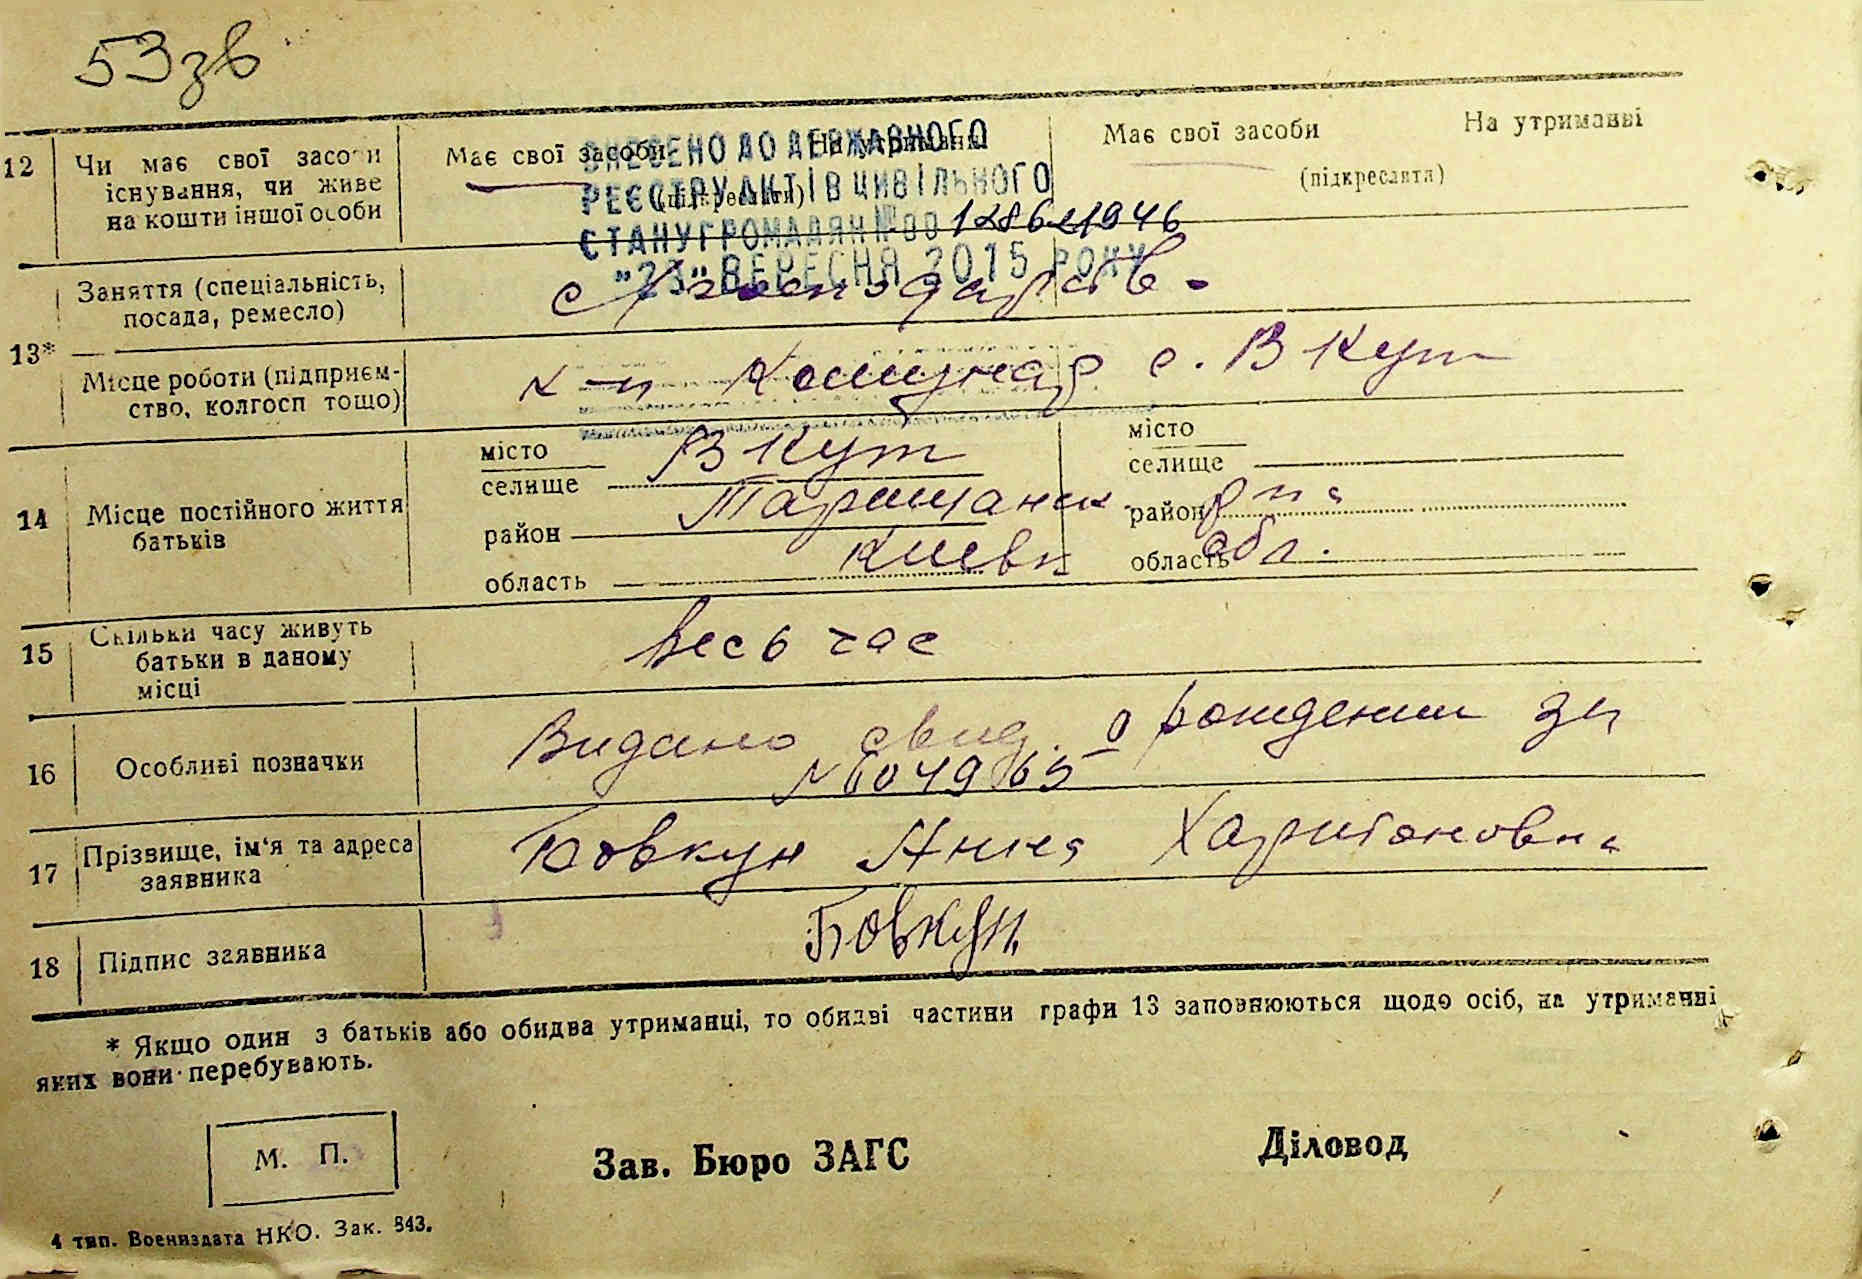 53зв
12 Чи має свої засоби Має свої засоби На утриманні Має свої засоби На утриманні
існування, чи живе (підкреслити) (підкреслити)
на кошти іншої особи
ВНЕСЕНО ДО ДЕРЖАВНОГО
РЕЄСТРУ АКТІВ ЦИВІЛЬНОГО
СТАНУ ГРОМАДЯН №00
"23" ВЕРЕСНЯ 2015 РОКУ
Заняття (спеціальність,
посада, ремесло)
13*
Місце роботи (підприєм- к-п Комунар с. В Кут
ство, колгосп тощо)
14 Місце постійного життя
батьків
місто
селище В Кут
район Таращанск
область Киевк
місто
селище
район р-н
область обл.
15 Скільки часу живуть
батьки в даному весь час
місці
16 Особливі позначки Видано свид. о рождении за
№ 604965
17 Прізвище, ім'я та адреса Бовкун Анна Харитоновна
заявника
18 Підпис заявника Бовкун
* Якщо один з батьків або обидва утриманці, то обидві частини графи 13 заповнюються щодо осіб, на утриманні
яких вони перебувають.
М. П.
Зав. Бюро ЗАГС Діловод
4 тип. Воениздата НКО. Зак. 843.